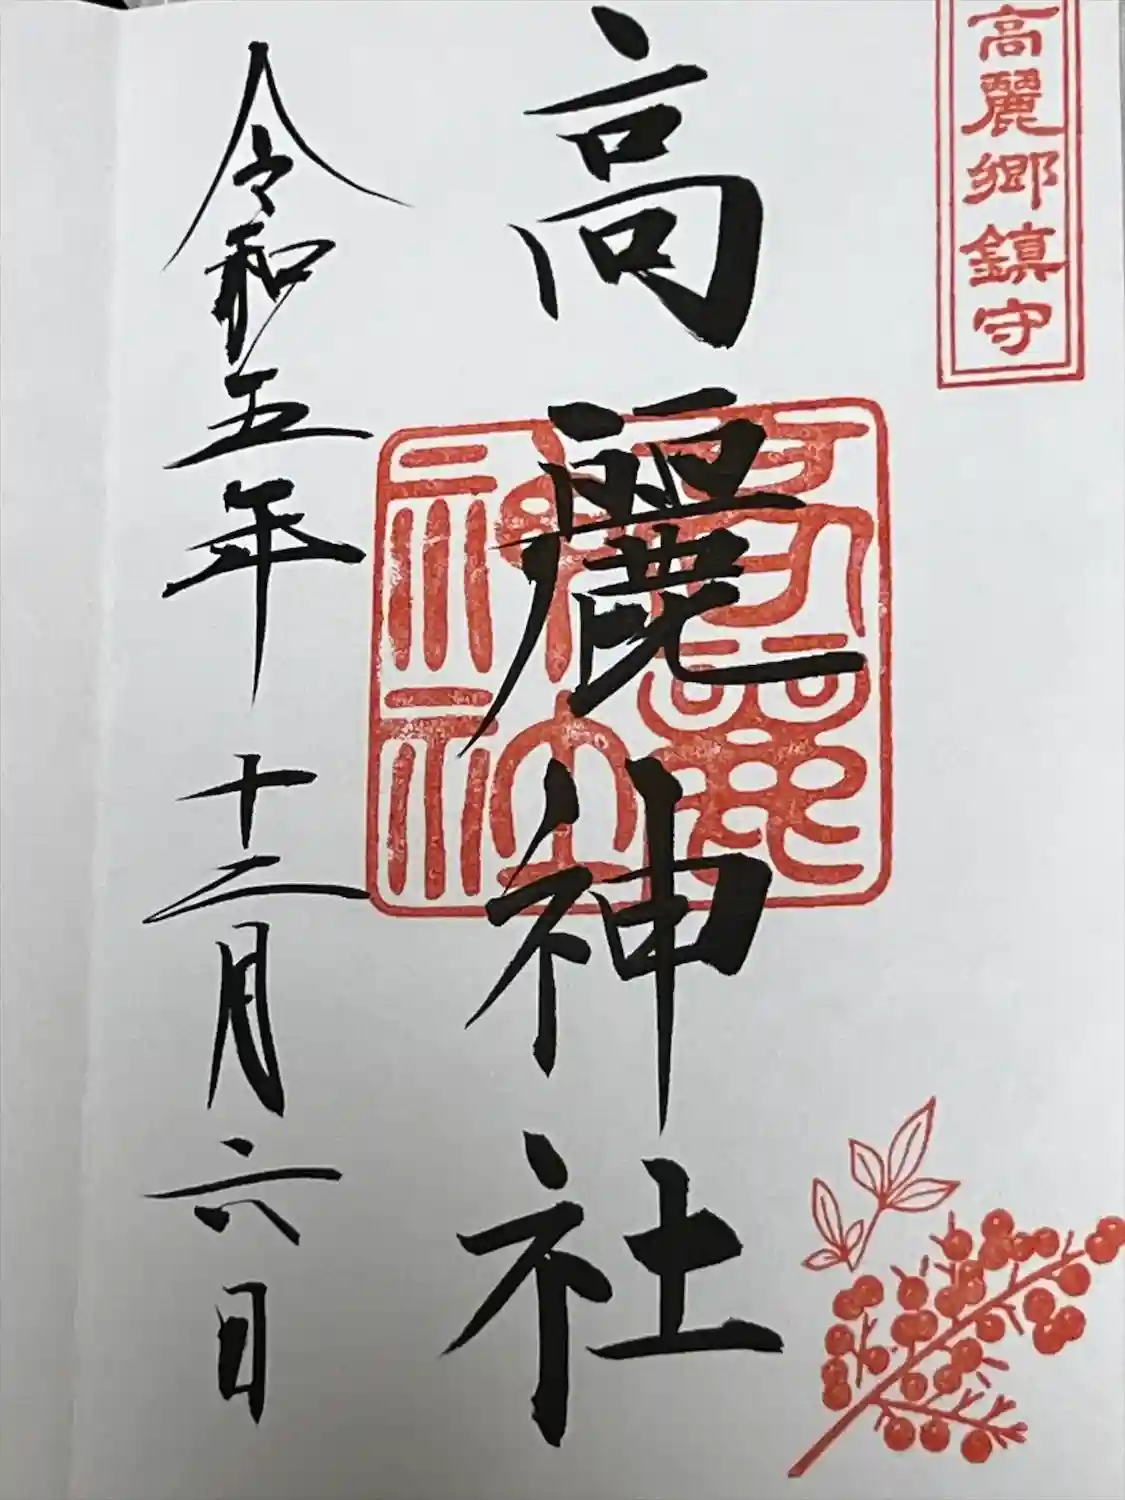 高麗郷鎮守
高麗神社
高麗神社
令和五年十二月六日